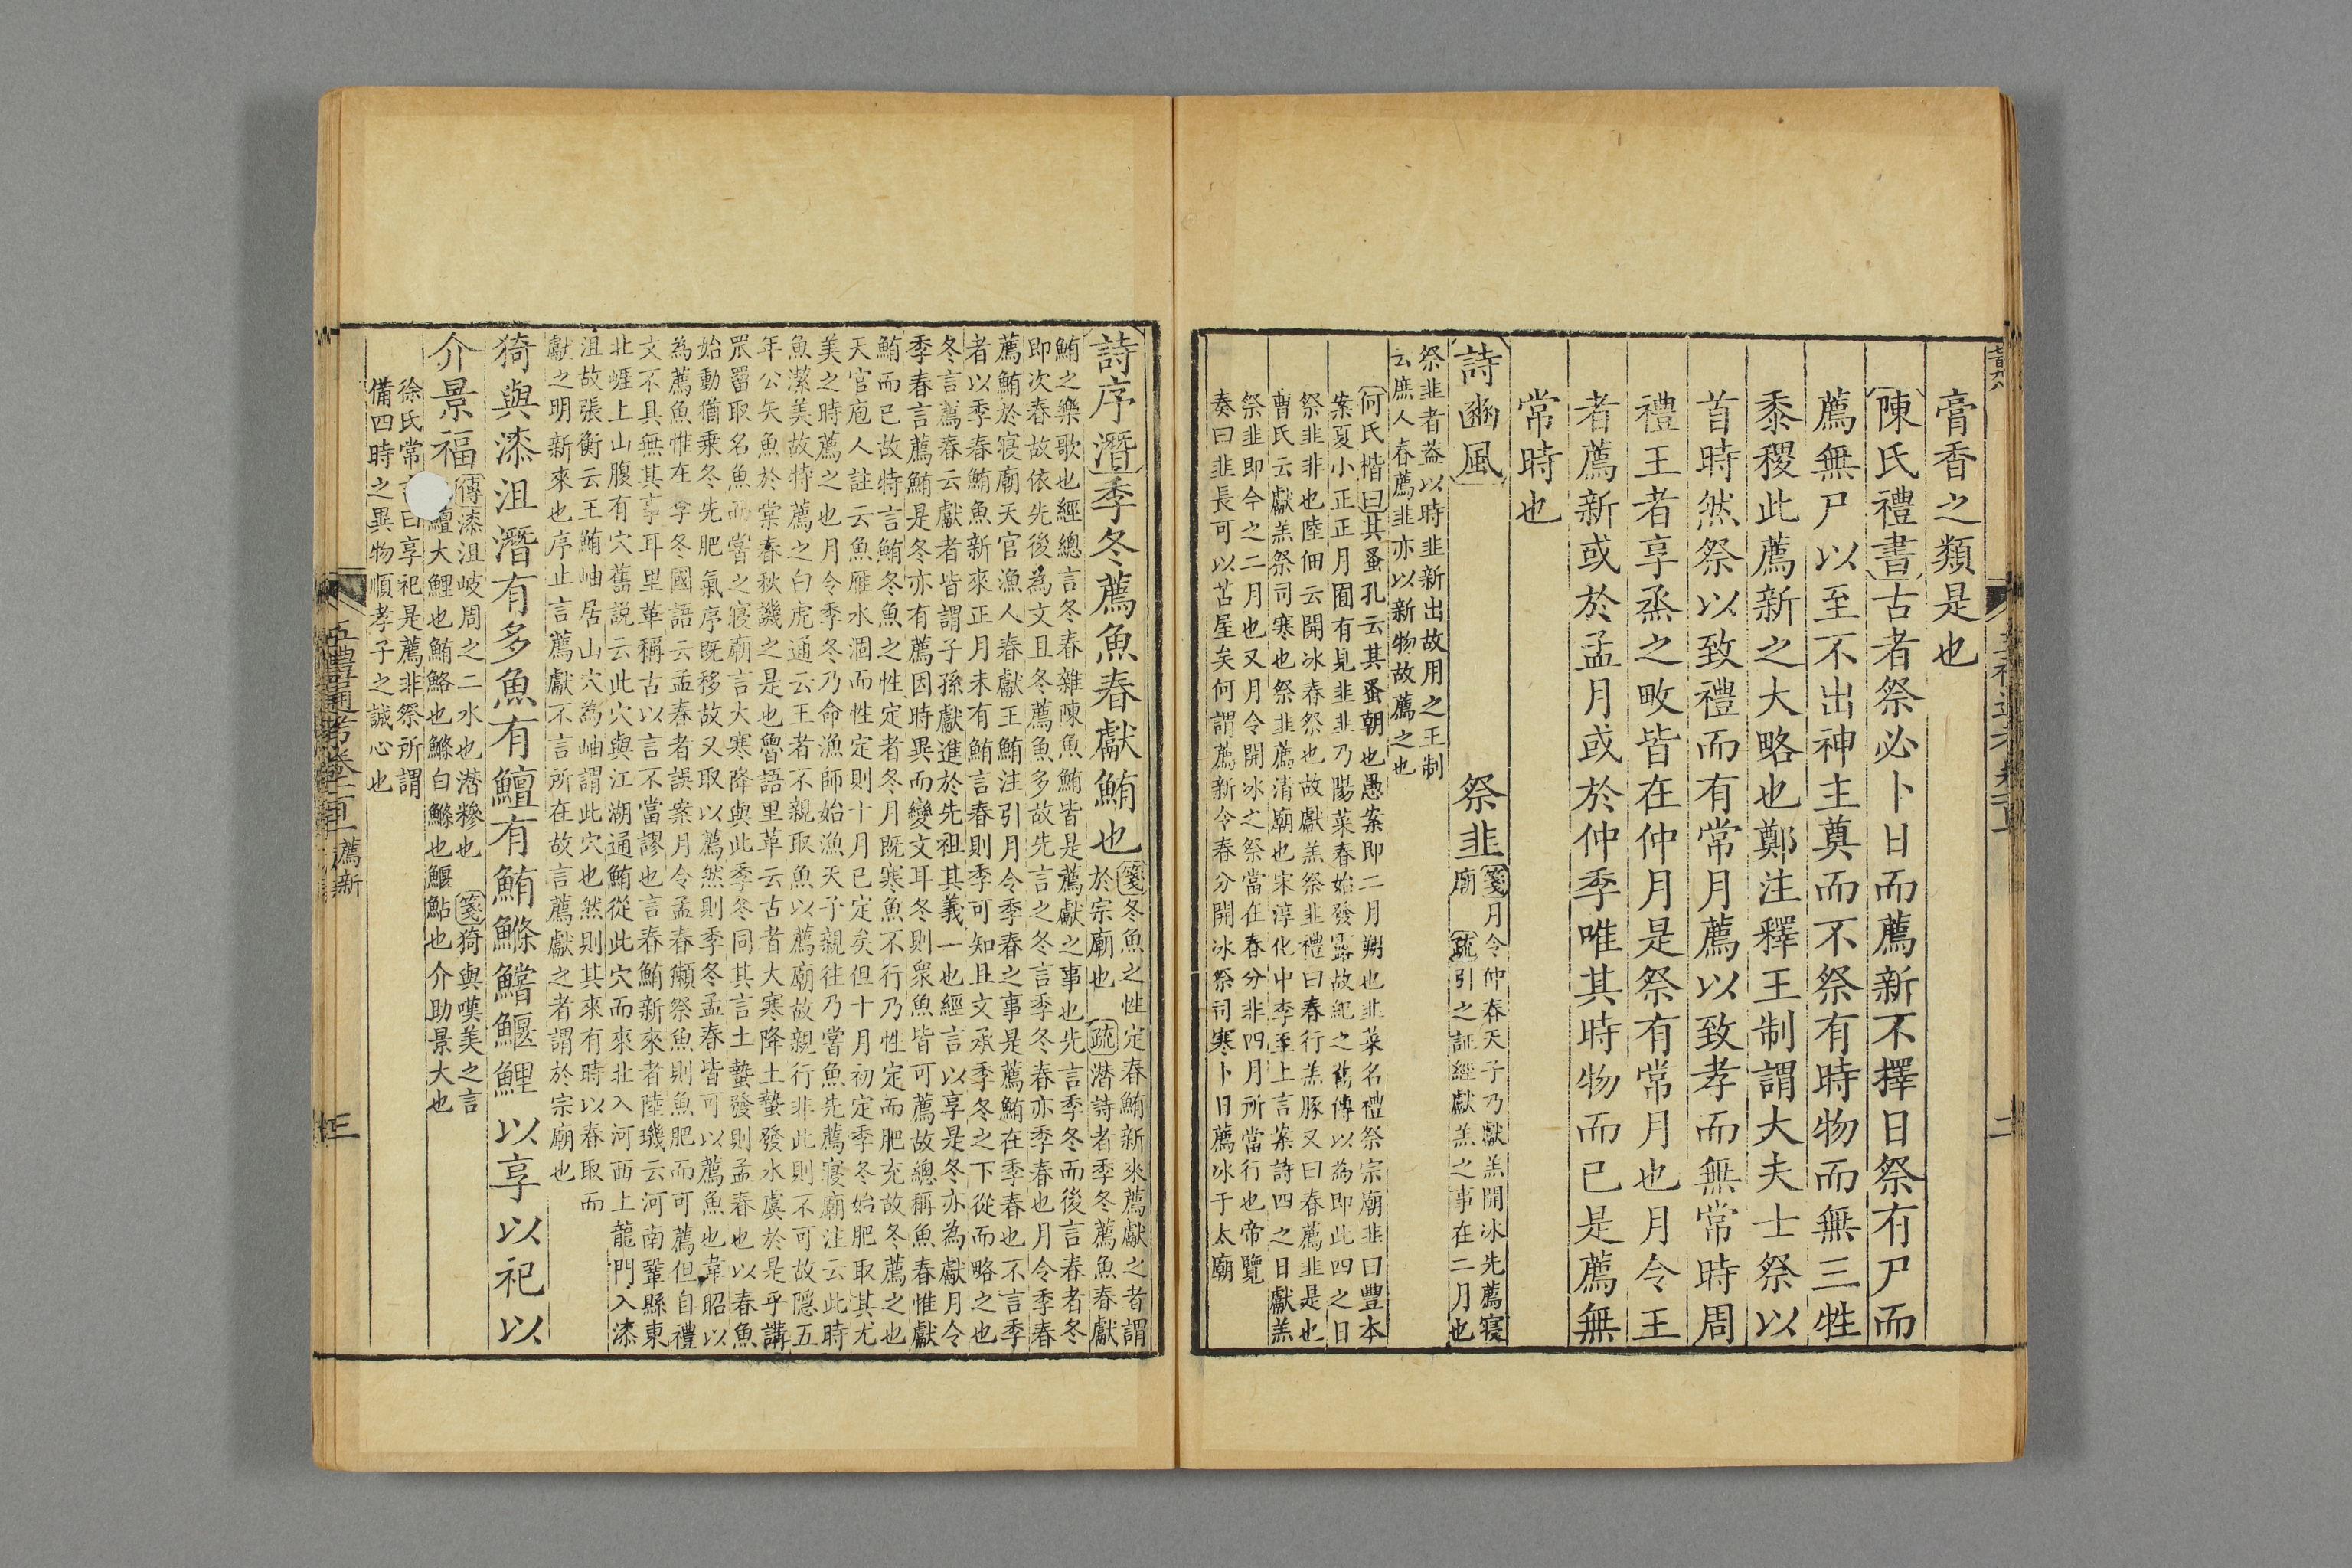 膏香之類是也
陳氏禮書古者祭必卜日而薦新不擇日祭有尸而
薦無尸以至不出神主奠而不祭有時物而無三牲
黍稷此薦新之大略也鄭注釋王制謂大夫士祭以
首時然祭以致禮而有常月薦以致孝而無常時周
禮王者享烝之畋皆在仲月是祭有常月也月令王
者薦新或於孟月或於仲季唯其時物而已是薦無
常時也
詩豳風
祭韭
箋月令仲春天子乃獻羔開冰先薦寢
廟 疏引之証經獻羔之事在二月也
祭韭者葢以時韭新出故用之王制
云庶人春薦韭亦以新物故薦之也
何氏楷曰其蚤孔云其蚤朝也愚案即二月朔也韭菜名禮祭宗廟韭曰豐本
案夏小正正月囿有見韭韭乃陽菜春始發露故紀之舊傳以為即此四之日
祭韭非也陸佃云開冰春祭也故獻羔祭韭禮曰春行羔豚又曰春薦韭是也
曹氏云獻羔祭司寒也祭韭薦清廟也宋淳化中李至上言案詩四之日獻羔
祭韭即今之二月也又月令開冰之祭當在春分非四月所當行也帝覽
奏曰韭長可以苫屋矣何謂薦新令春分開冰祭司寒卜日薦冰于太廟
詩序潛季冬薦魚春獻鮪也
箋冬魚之性定春鮪新來薦獻之者謂
於宗廟也 疏潛詩者季冬薦魚春獻
鮪之樂歌也經總言冬春雜陳魚鮪皆是薦獻之事也先言季冬而後言春者冬
即次春故依先後為文且冬薦魚多故先言之冬言季冬春亦季春也月令季春
薦鮪於寢廟天官漁人春獻王鮪注引月令季春之事是薦鮪在季春也不言季
者以季春鮪魚新來正月未有鮪言春則季可知且文承季冬之下從而略之也
冬言薦春云獻者皆謂子孫獻進於先祖其義一也經言以享是冬亦為獻月令
季春言薦鮪是冬亦有薦因時異而變文耳冬則衆魚皆可薦故總稱魚春惟獻
鮪而已故特言鮪冬魚之性定者冬月既寒魚不行乃性定而肥充故冬薦之也
天官庖人註云魚雁水涸而性定則十月已定矣但十月初定季冬始肥取其尤
美之時薦之也月令季冬乃命漁師始漁天子親往乃嘗魚先薦寢廟注云此時
魚潔美故特薦之白虎通云王者不親取魚以薦廟故親行非此則不可故隱五
年公矢魚於棠春秋譏之是也魯語里革云古者大寒降土蟄發水虞於是乎講
罛罶取名魚而嘗之寢廟言大寒降與此季冬同其言土蟄發則孟春也以春魚
始動猶乗冬先肥氣序既移故又取以薦然則季冬孟春皆可以薦魚也韋昭以
為薦魚惟在季冬國語云孟春者誤案月令孟春獺祭魚則魚肥而可薦但自禮
文不具無其事耳里革稱古以言不當謬也言春鮪新來者陸璣云河南鞏縣東
北崕上山腹有穴舊說云此穴與江湖通鮪從此穴而來北入河西上龍門入漆
沮故張衡云王鮪岫居山穴為岫謂此穴也然則其來有時以春取而
獻之明新來也序止言薦獻不言所在故言薦獻之者謂於宗廟也
猗與漆沮潛有多魚有鱣有鮪鰷鱨鰋鯉以享以祀以
介景福
傳漆沮岐周之二水也潛糝也 箋猗與嘆美之言
鱣大鯉也鮪鮥也鰷白鰷也鰋鮎也介助景大也
徐氏常曰享祀是薦非祭所謂
備四時之異物順孝子之誠心也
五禮通考卷 薦新
三
二